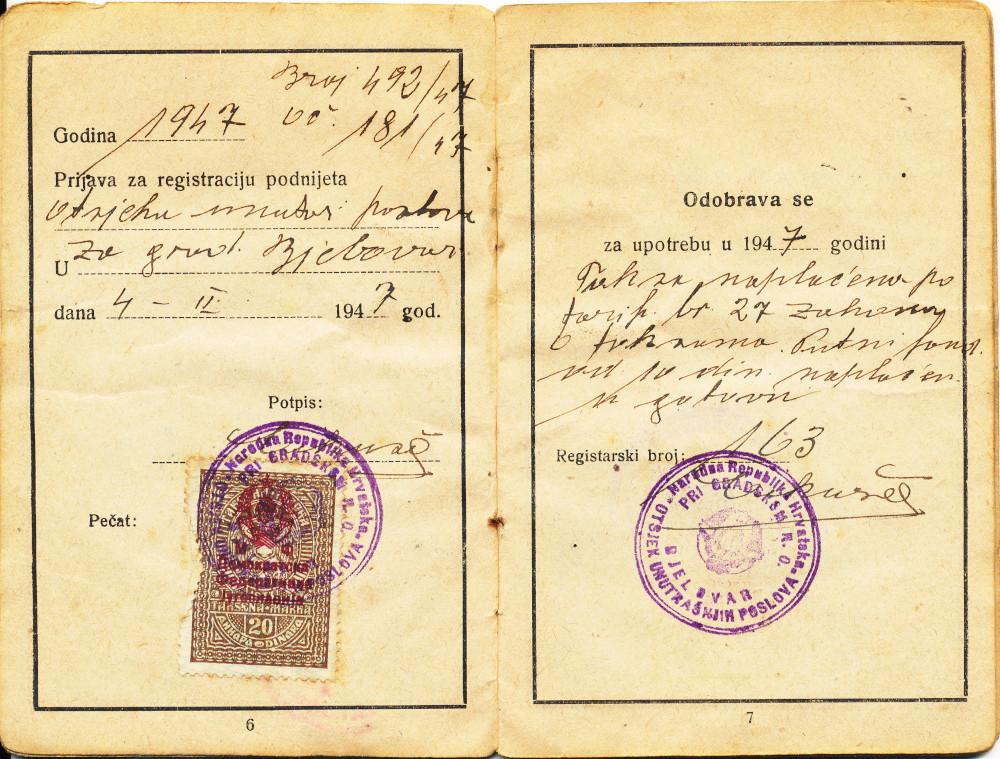 Broj 492/47
Godina 1947 Oč. 181/47
Prijava za registraciju podnijeta
Otsjeku unutar. poslova
U za grad. Bjelovar
dana 4 - II 1947 god.
Potpis:
Pečat:
Narodna Republika Hrvatska
PRI GRADSKOM N. O.
POSLOVA
Демократска
Федеративна
Југославија
TAKSENA MARKA
20
ДИНАРА DINARA
6
Odobrava se
za upotrebu u 1947 godini
Taksa naplaćena po
tarif. br 27 zakona
o taksama. Putni fond.
od 10 din. naplaćen
u gotovu
Registarski broj: 163
Narodna Republika Hrvatska
PRI GRADSKOM N. O.
BJELOVAR
OTSJEK UNUTRAŠNJIH POSLOVA
7